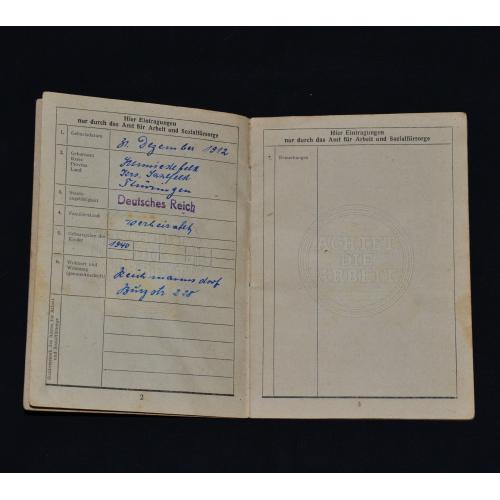 Hier Eintragungen
nur durch das Amt für Arbeit und Sozialfürsorge
1. Geburtsdatum
31. Dezember 1912
2. Geburtsort
Kreis
Provinz
Land
Schmiedefeld
Krs. Saalfeld
Thüringen
3. Staats-
angehörigkeit
Deutsches Reich
4. Familienstand
verheiratet
5. Geburtsjahre der
Kinder
1940
6. Wohnort und
Wohnung
Reichmannsdorf
Burgstr 228
2
Hier Eintragungen
nur durch das Amt für Arbeit und Sozialfürsorge
7. Bemerkungen
ACHTET
DIE
ARBEIT
3